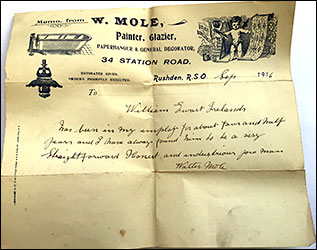 Memo. from
W. MOLE,
Painter, Glazier,
PAPERHANGER & GENERAL DECORATOR,
34 STATION ROAD,
ESTIMATES GIVEN.
ORDERS PROMPTLY EXECUTED.
Rushden, R.S.O. Sep 1916
To
William Ewart Ireland
has been in my employ for about four and half
years and I have always found him to be a very
straightforward Honest and industrious young man
Walter Mole